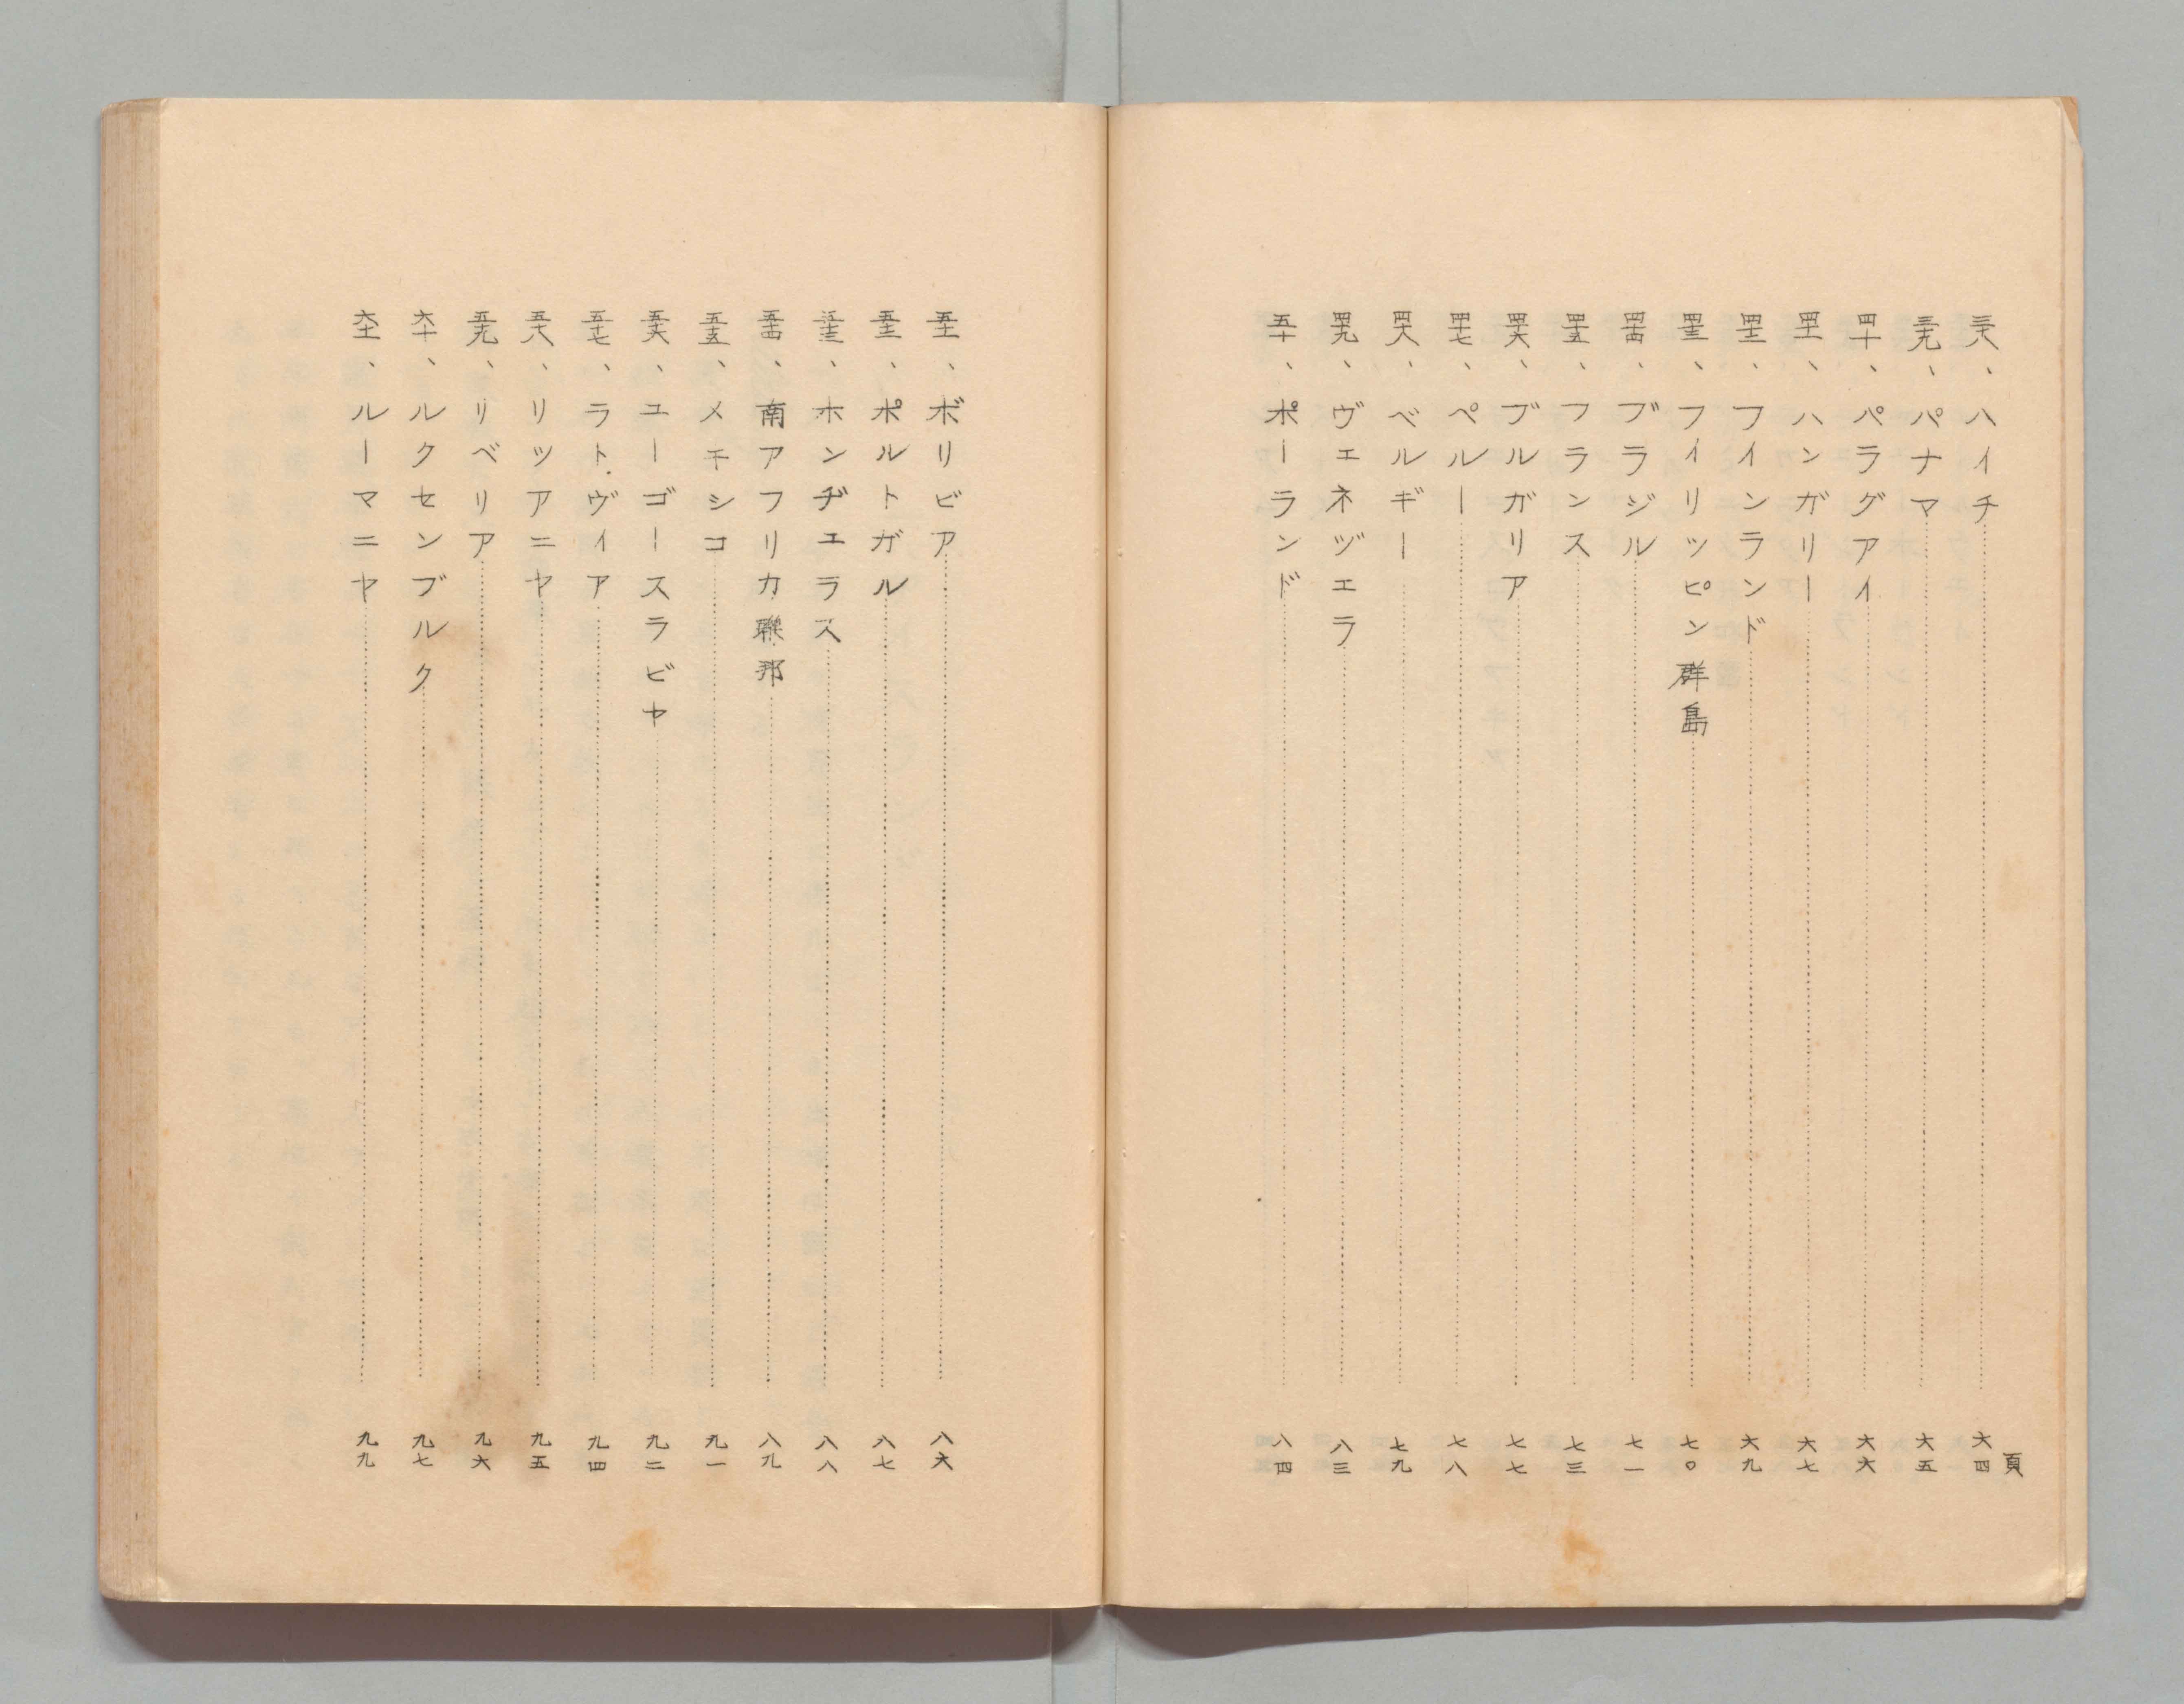 三十八、ハイチ 六四頁
三十九、パナマ 六五
四十、パラグアイ 六六
四十一、ハンガリー 六七
四十二、フインランド 六九
四十三、フイリッピン群島 七〇
四十四、ブラジル 七一
四十五、フランス 七三
四十六、ブルガリア 七七
四十七、ペルー 七八
四十八、ベルギー 七九
四十九、ヴェネヅエラ 八三
五十、ポーランド 八四
五十一、ボリビア 八六
五十二、ポルトガル 八七
五十三、ホンヂエラス 八八
五十四、南アフリカ聯邦 八九
五十五、メキシコ 九一
五十六、ユーゴースラビヤ 九二
五十七、ラトヴィア 九四
五十八、リツアニヤ 九五
五十九、リベリア 九六
六十、ルクセンブルク 九七
六十一、ルーマニヤ 九九